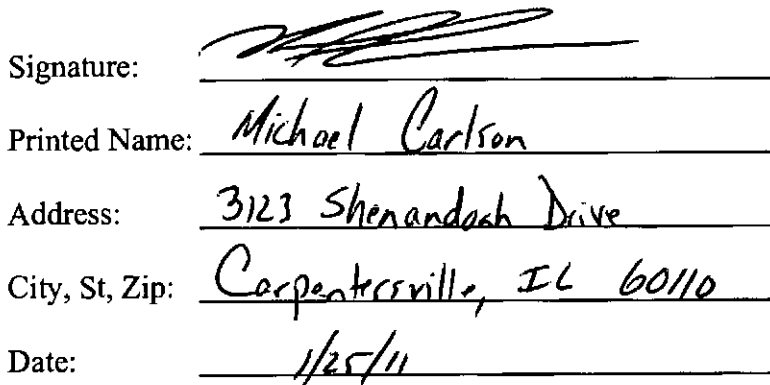 Signature:
Printed Name: Michael Carlson
Address: 3123 Shenandoah Drive
City, St, Zip: Carpentersville, IL 60110
Date: 1/25/11